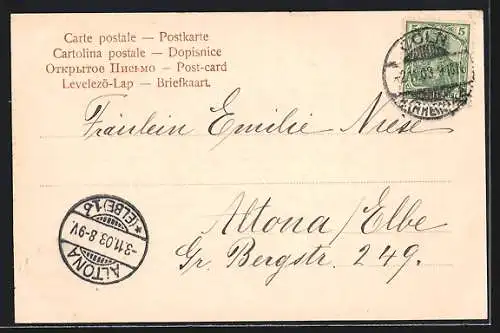 Carte postale — Postkarte
Cartolina postale — Dopisnice
Открытое Письмо — Post-card
Levelező-Lap — Briefkaart.
5 5
CÖLN
Fräulein Emilie Niese
Altona/Elbe
Gr. Bergstr. 249.
ALTONA
-3.11.03.8-9V.
*(ELBE)1.g